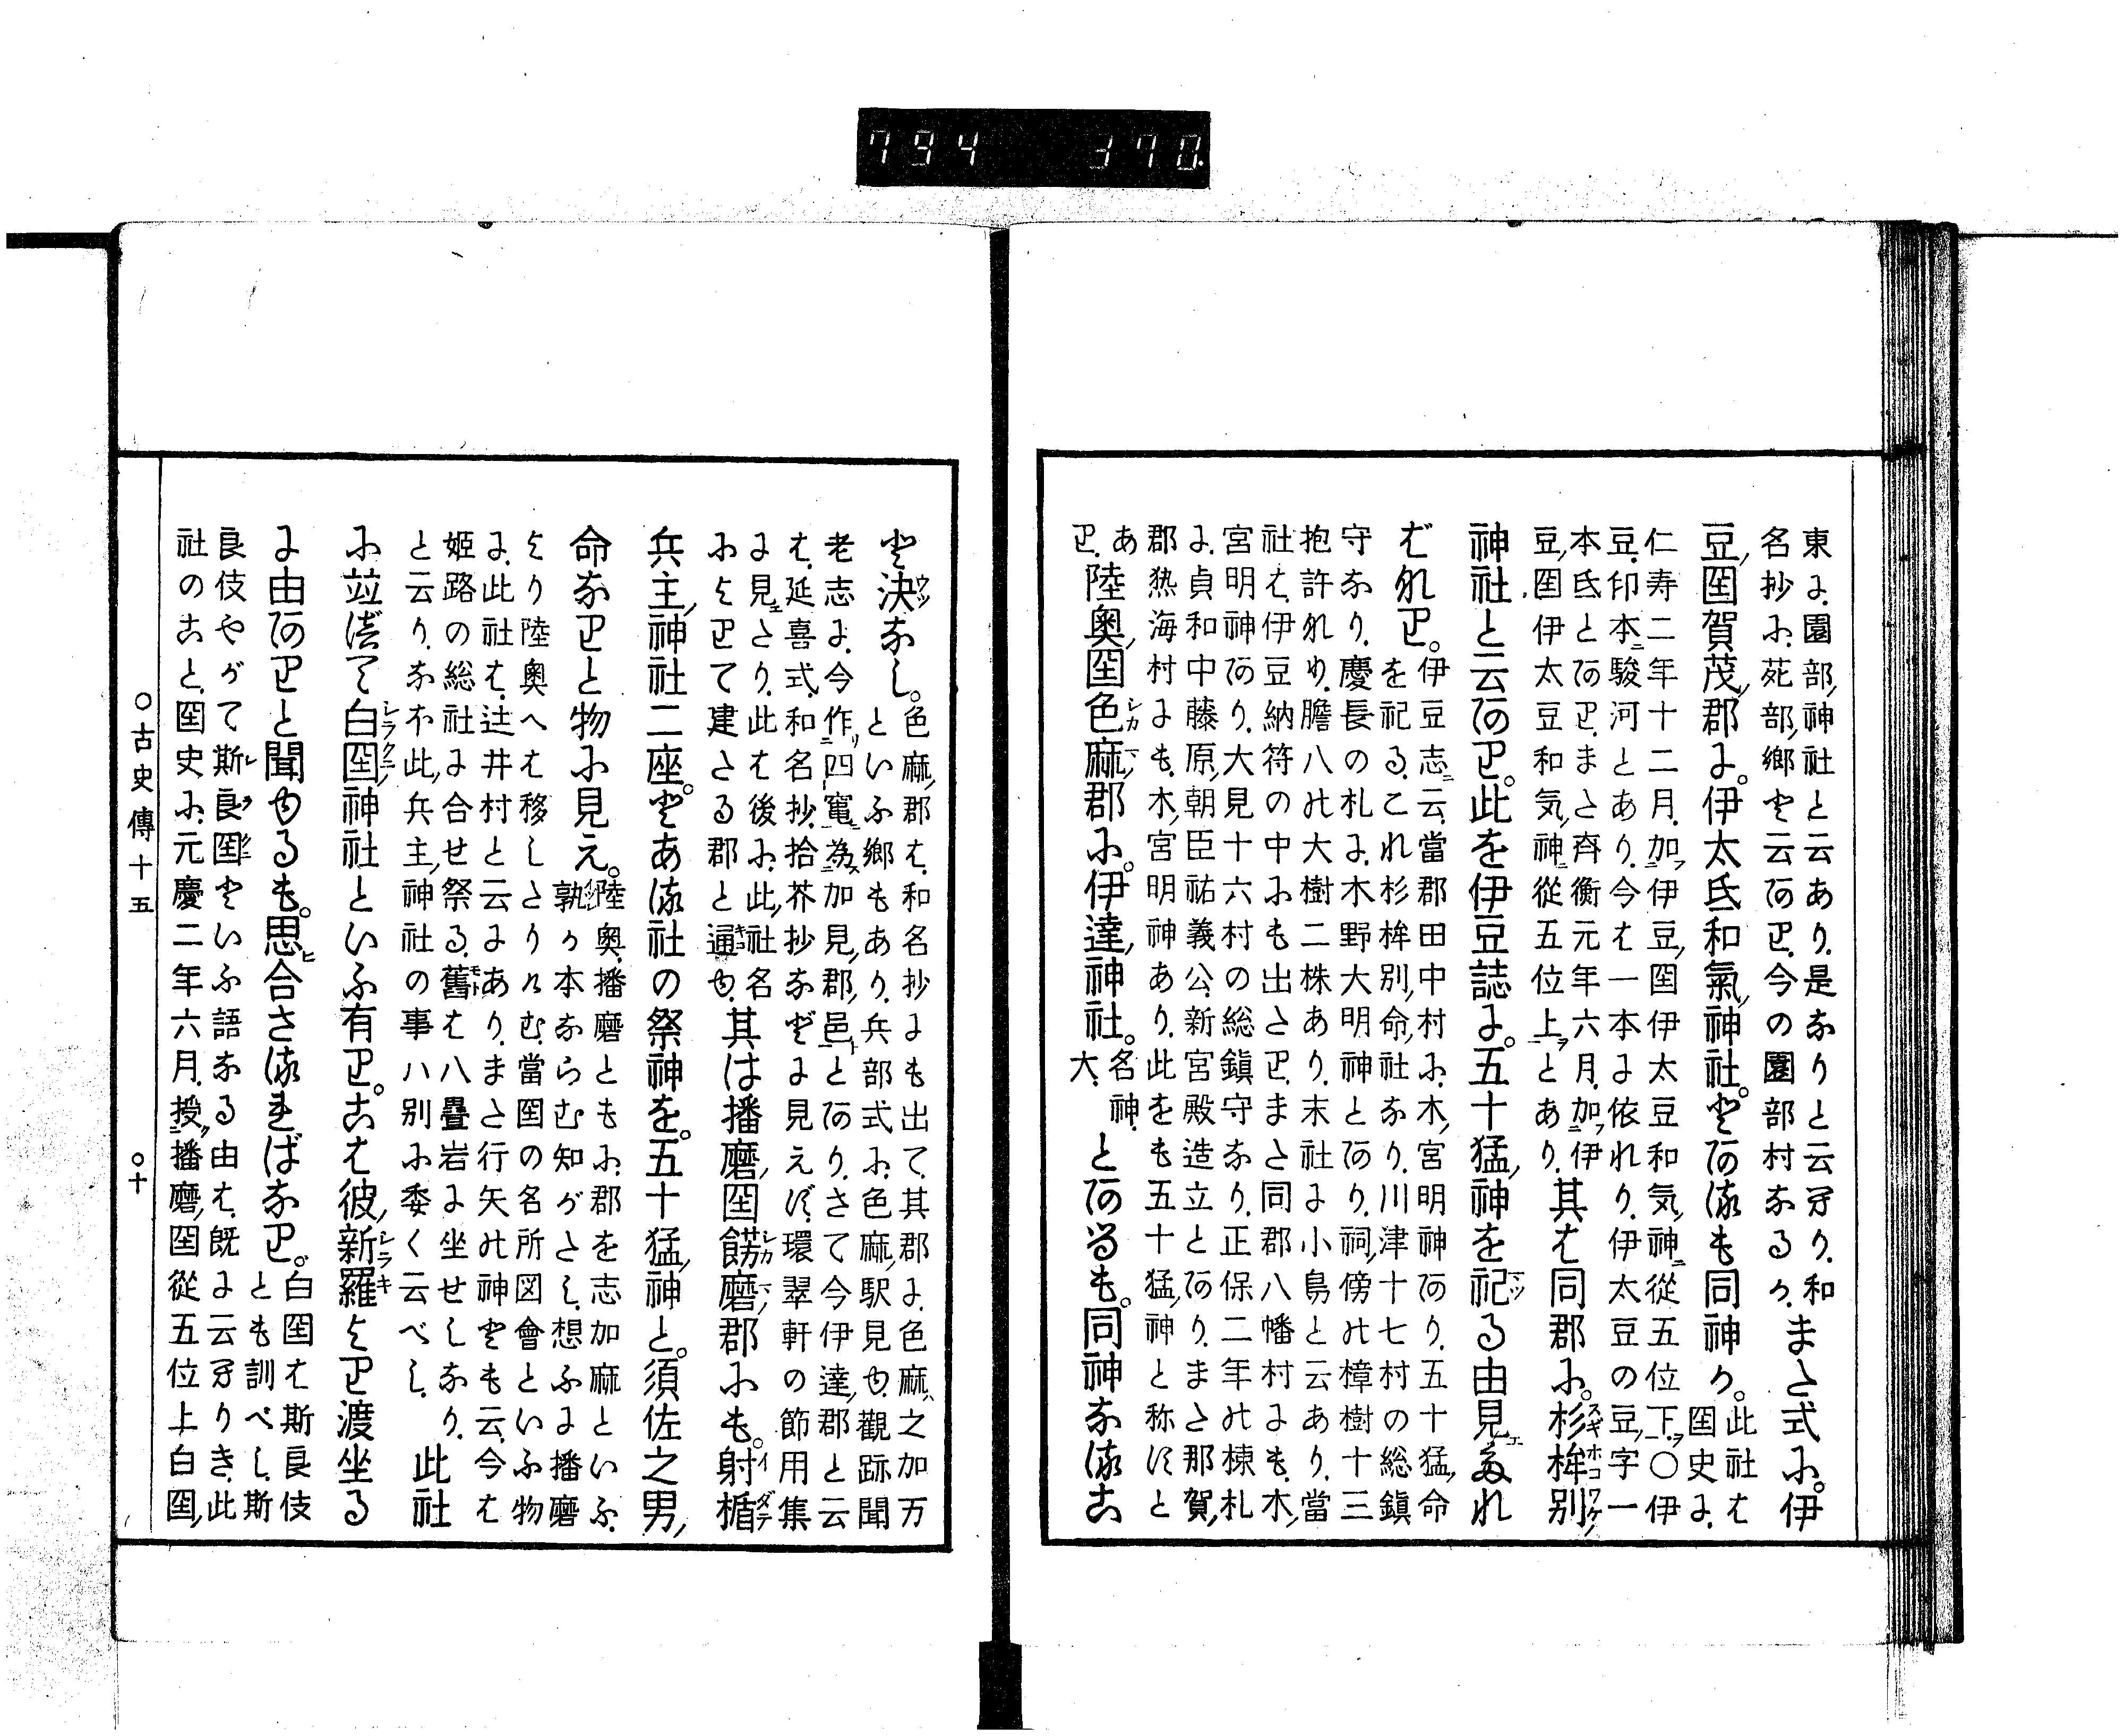 794 370
東に園部ノ神社と云あり.是なりと云り.和
名抄に苑部ノ郷と云あり.今の園部村なるか.
また式に。伊
豆ノ国賀茂ノ郡に。伊太氐和氣ノ神社。とあるも同神か。
此社は
国史に.
仁寿二年十二月.加伊豆ノ国伊太豆和気ノ神従五位下.○伊
豆.印本駿河とあり.今は一本に依れり.伊太豆の豆ノ字一
本氐とあり.また斉衡元年六月.加伊
豆ノ国伊太豆和気ノ神従五位上とあり.
其は同郡に。杉桙別ノ
神社と云あり。此を伊豆誌に。五十猛ノ神を祀る由見たれ
ばなり。
伊豆志云.當郡田中村に.木ノ宮明神あり.五十猛ノ命
を祀る.これ杉桙別ノ命ノ社なり.川津十七村の総鎮
守なり.慶長の札に.木野大明神とあり.祠ノ傍に樟樹十三
抱許なり.膽八の大樹二株あり.末社に小鳥と云あり.當
社は.伊豆納符の中にも出たり.また同郡八幡村にも.木ノ
宮明神あり.大見十六村の総鎮守なり.正保二年の棟札
に.貞和中藤原ノ朝臣祐義公.新宮殿造立とあり.また那賀ノ
郡熱海村にも.木ノ宮明神あり.此をも五十猛ノ神と称すと
あり.
陸奥ノ国色麻ノ郡に。伊達ノ神社。
名神
大.
とあるも。同神なるこ
と決なし。
色麻ノ郡は.和名抄にも出て.其郡に.色麻ハ之加万
といふ郷もあり.兵部式に.色麻ノ駅見ゆ.觀跡聞
老志に.今作四竃為加見ノ郡ノ邑とあり.さて今伊達ノ郡と云
は.延喜式.和名抄.拾芥抄などに見えず.環翠軒の節用集
に見えたり.此は後に.此ノ社名
によりて建たる郡と通ゆ.
其は播磨ノ国餝磨ノ郡にも。射楯
兵主ノ神社二座。とある社の祭神を。五十猛ノ神と。須佐之男ノ
命なりと物に見え。
陸奥.播磨ともに.郡を志加麻といふ.
孰か本ならむ知がたし.想ふに播磨
より陸奥へは移したりけむ.當国の名所図會といふ物
に.此社は.辻井村と云にあり.また行矢の神とも云.今は
姫路の総社に合せ祭る.舊は八疊岩に坐せしなり.
と云り.なほ此ノ兵主ノ神社の事ハ別に委く云べし.
此社
に竝びて白国ノ神社といふ有り。こは彼ノ新羅より渡坐る
に由ありと聞ゆるも。思合さるればなり。
白国は斯良伎
とも訓べし.斯
良伎やがて斯良国といふ語なる由は.既に云りき.此
社のこと.国史に.元慶二年六月.授播磨ノ国従五位上白国ノ
○古史傳十五 ○十